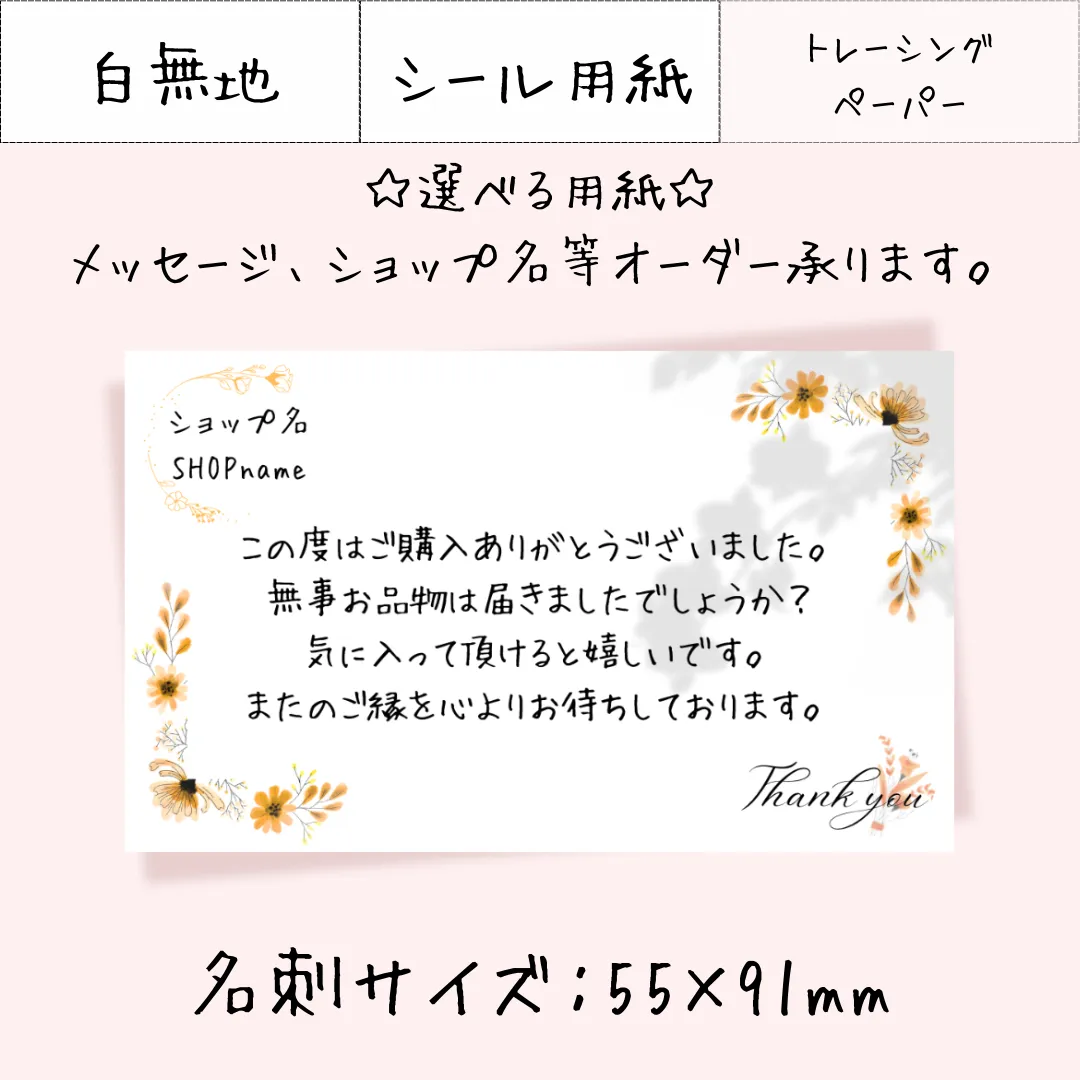 白無地
シール用紙
トレーシング
ペーパー
☆選べる用紙☆
メッセージ、ショップ名等オーダー承ります。
ショップ名
SHOPname
この度はご購入ありがとうございました。
無事お品物は届きましたでしょうか?
気に入って頂けると嬉しいです。
またのご縁を心よりお待ちしております。
Thank you
名刺サイズ;55×91mm